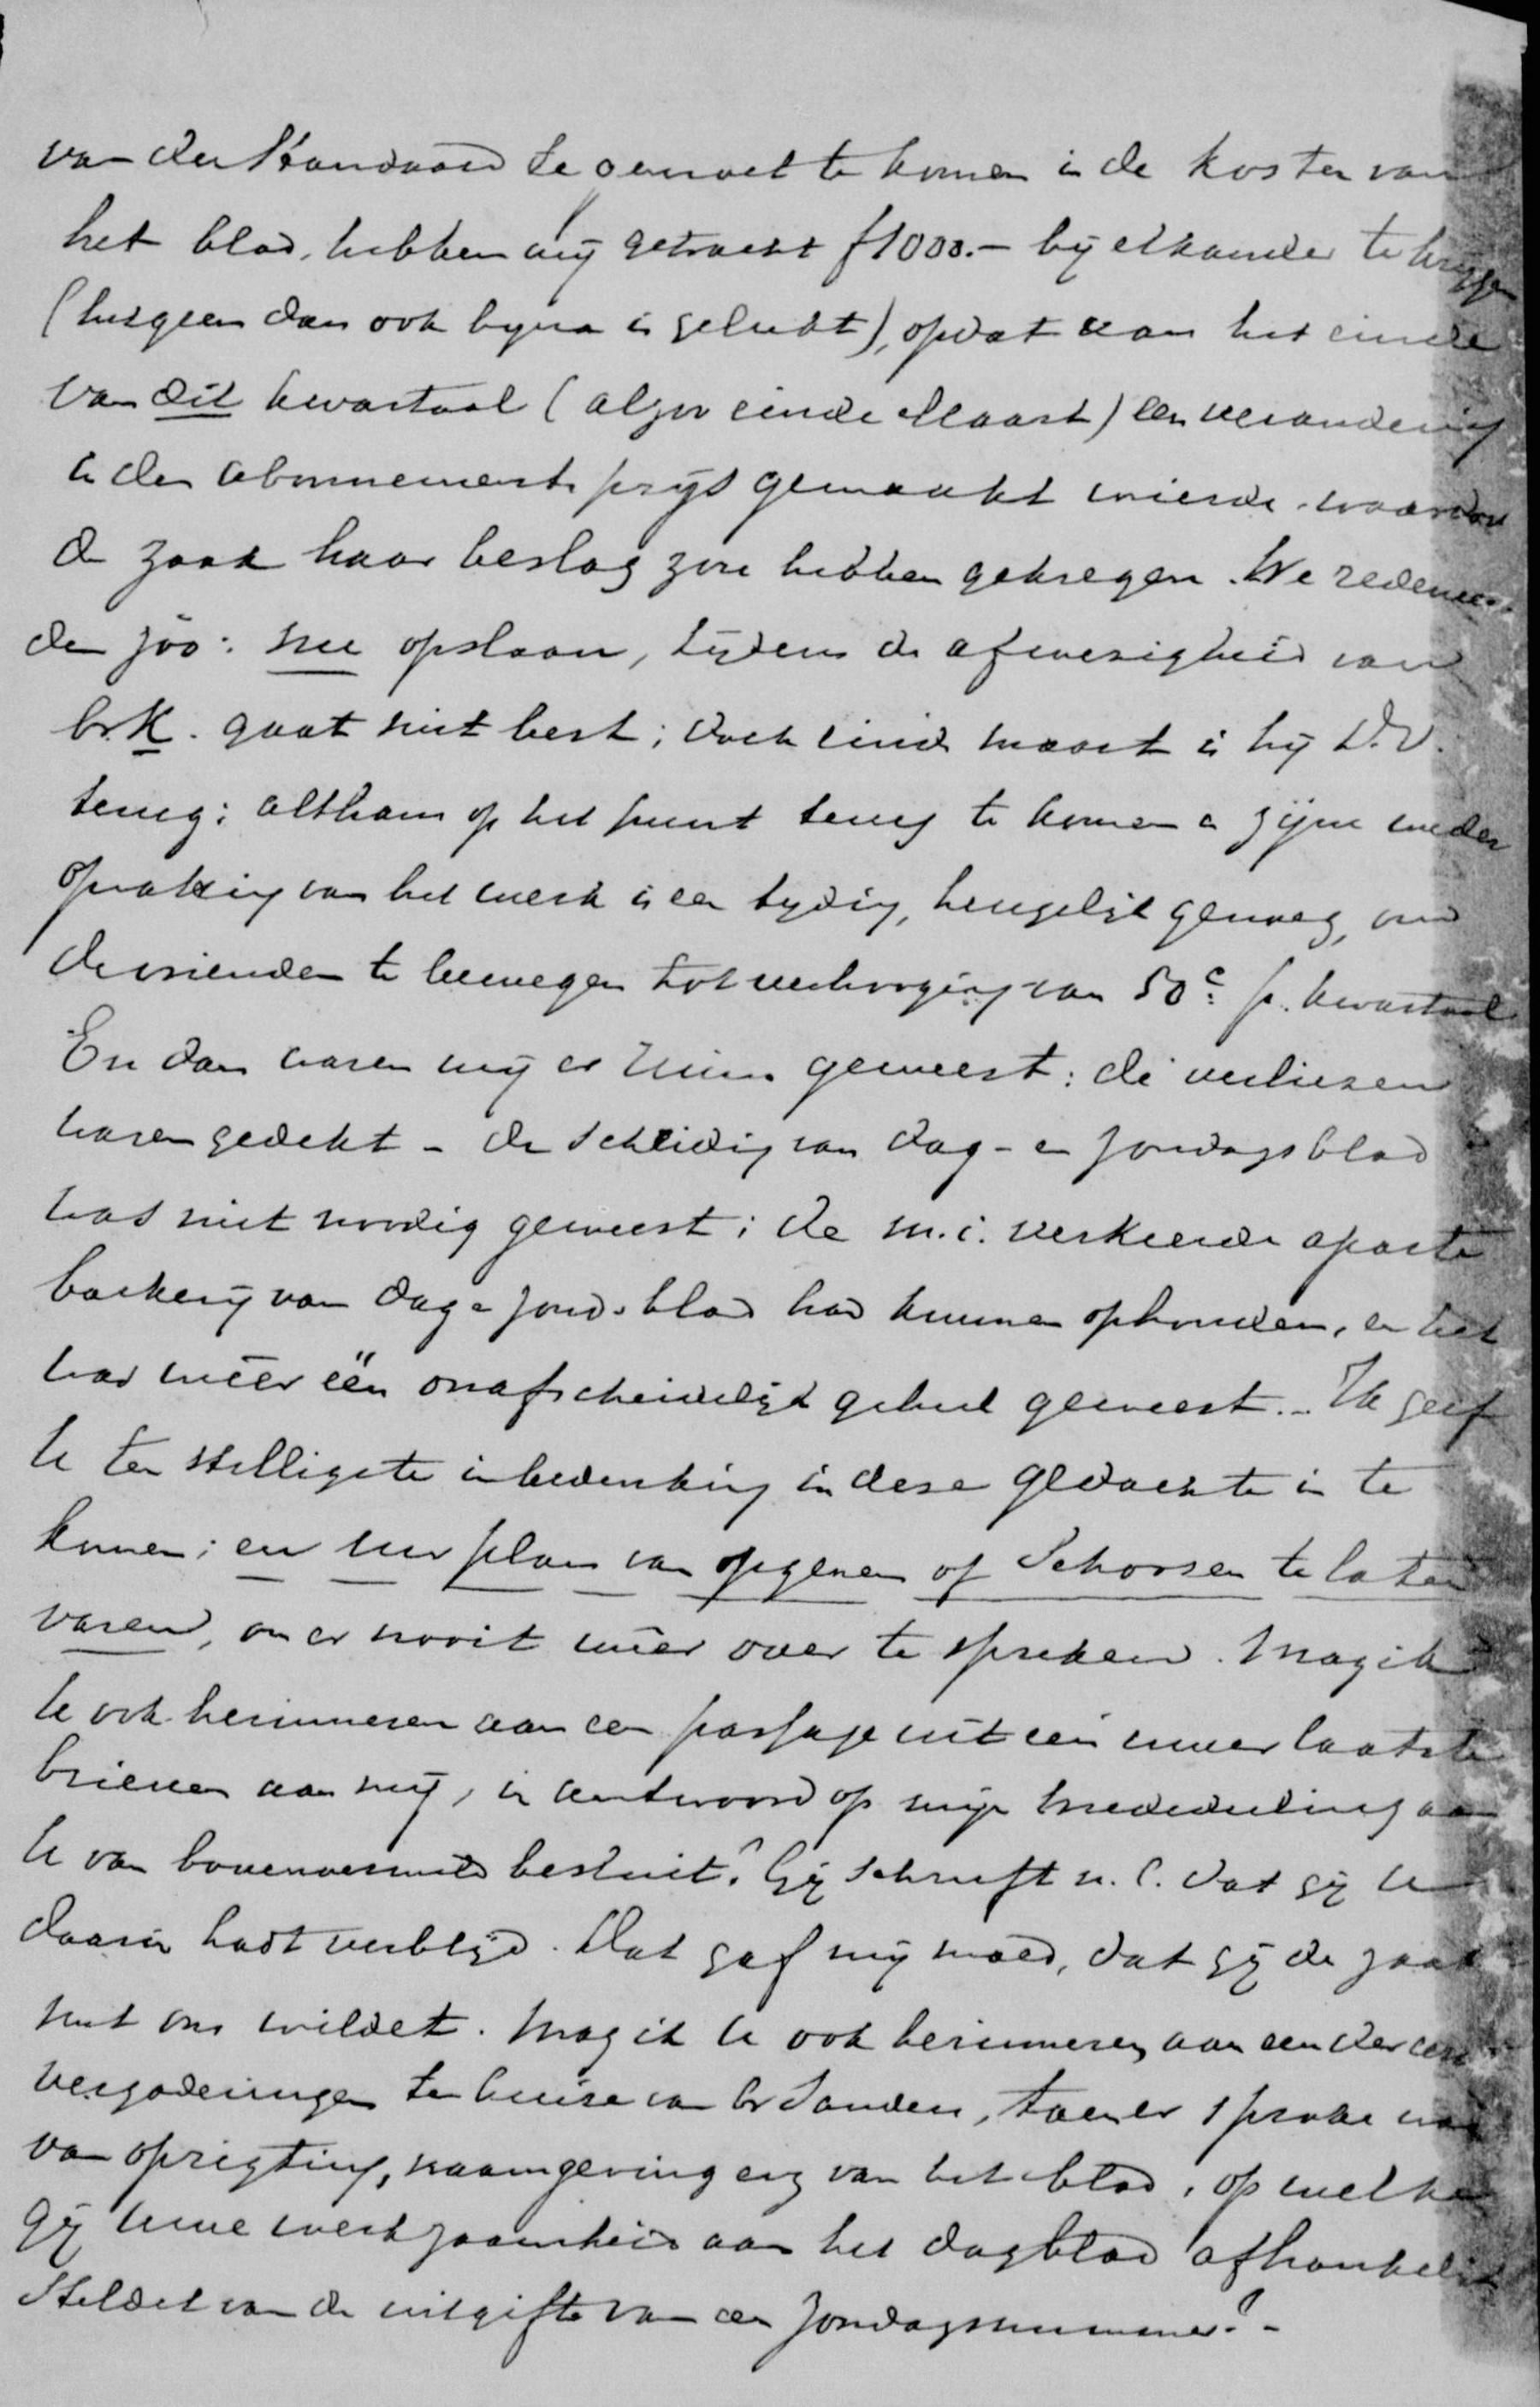 van den Standaard te gemoet te komen in de kosten van
het blad, hebben wij getracht f1000.- bij elkander te krijgen
(hetgeen dan ook bijna is gelukt), opdat aan het einde
van dit kwartaal (alzoo einde Maart) een verandering
in den abonnementsprijs gemaakt wierde waardoor
de zaak haar beslag zou hebben gekregen. We redeneer-
den zóó: nu opslaan, tijdens de afwezigheid van
br. K. gaat niet best; doch eind maart is hij D.V.
terug; althans op het punt terug te komen en zijne weder
opvatting van het werk is een tijding, heugelijk genoeg, om
de vrienden te bewegen tot verhooging van 50c. p. kwartaal
En dan waren wij er ruim geweest: de verliezen
waren gedekt - de scheiding van dag- en zondagsblad
was niet noodig geweest; de m.i. verkeerde aparte
boeking van dag en zond.blad had kunnen ophouden, en het
had weer één onafscheidelijk geheel geweest. - Ik geef
U ten stelligste in bedenking in deze gedachte in te
komen; en uw plan van opgeven of schorsen te laten
varen, om er nooit weer over te spreken. Mag ik
U ook herinneren aan een passage uit een uwer laatste
brieven aan mij, in antwoord op mijn mededeeling aan
U van bovenvermeld besluit? Gij schreeft n.l. dat gij U
daarin hadt verblijd. Dat gaf mij moed, dat gij de zaak
met ons wildet. Mag ik U ook herinneren aan een der eerste
vergaderingen ten huize van br Sanders, toen er sprake was
van oprigting, naamgeving enz van het blad, op welke
gij uwe werkzaamheid aan het dagblad afhankelijk
steldet van de uitgifte van een Zondagsnummer? -